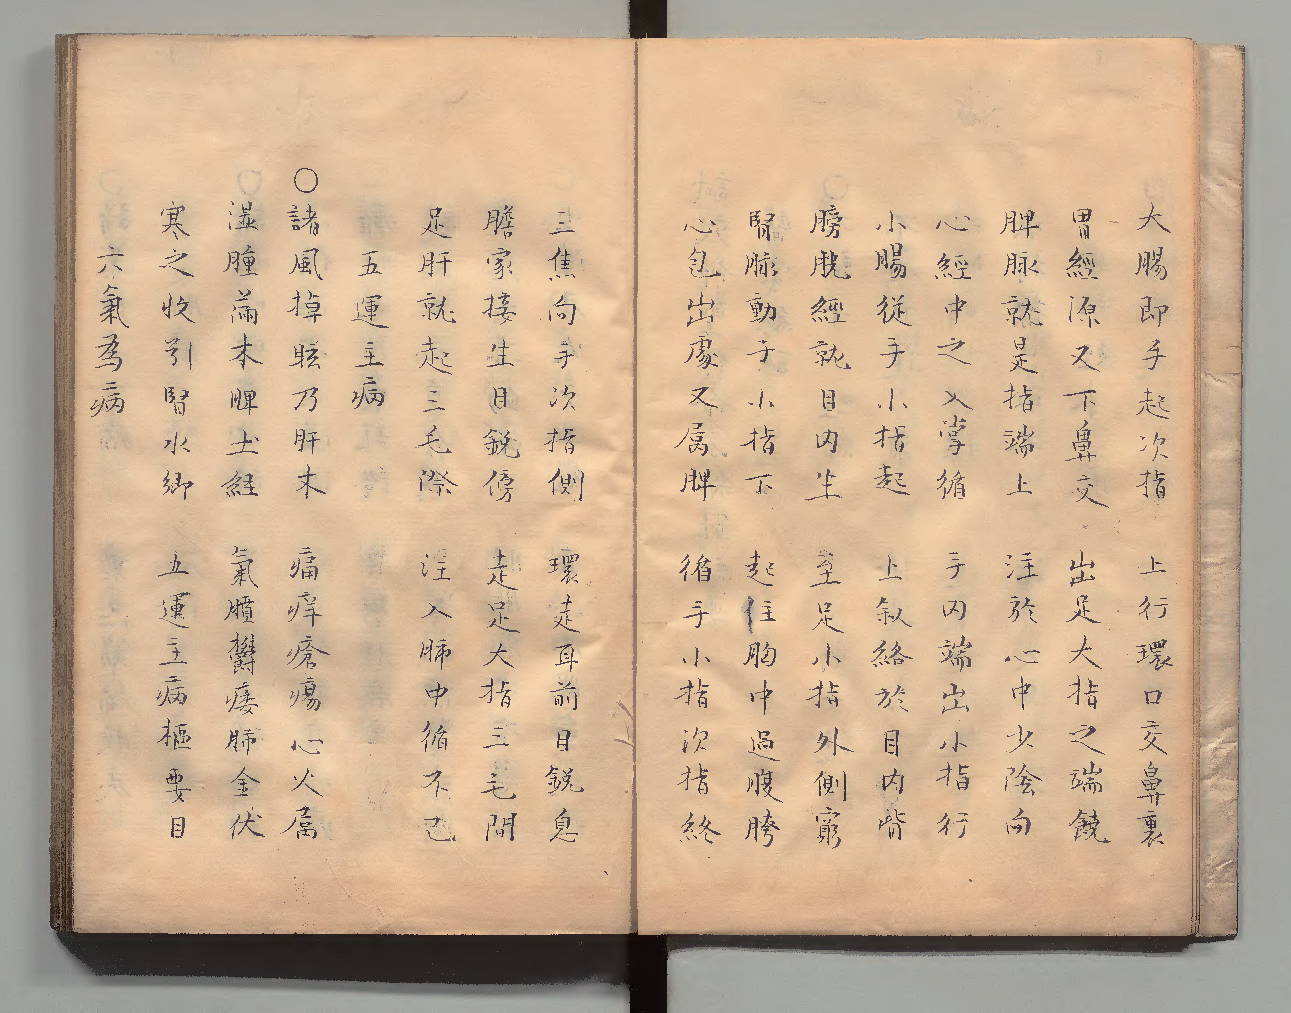 大腸即手起次指　上行環口交鼻裏
胃經源又下鼻交　出足大指之端饒
脾脉就是指端上　注於心中少陰向
心經中之入掌循　手内端出小指行
小腸従手小指起　上叙絡於目内眥
膀胱經就目内生　至足小指外側窮
腎脉動于小指下　起住胸中過腹胯
心包出處又属脾　循手小指次指終
三焦向手次指側　環走耳前目鋭息
膽家接生目鋭傍　走足大指三毛間
足肝就起三毛際　注入肺中循不已
五運主病
○諸風掉眩乃肝木　痛痒瘡瘍心火属
湿腫滿本脾土経　氣膹鬱痿肺金伏
寒之收引腎水鄉　五運主病樞要目
六氣為病